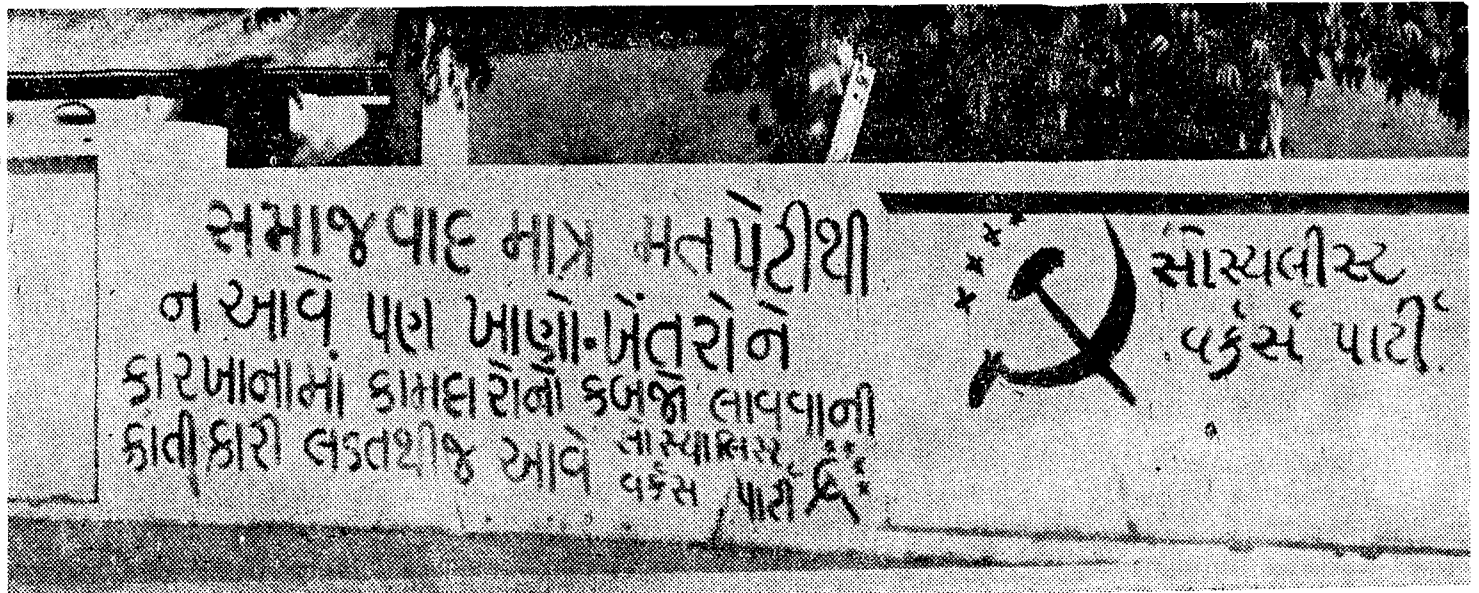 સમાજવાદ માત્ર મતપેટીથી
ન આવે પણ ખાણો-ખેતરોને
કારખાનામાં કામદારોનો કબજો લાવવાની
ક્રાંતીકારી લડતથીજ આવે
સોસ્યાલિસ્ટ
વર્કસ પાર્ટી
સોસ્યલીસ્ટ
વર્કર્સ પાર્ટી